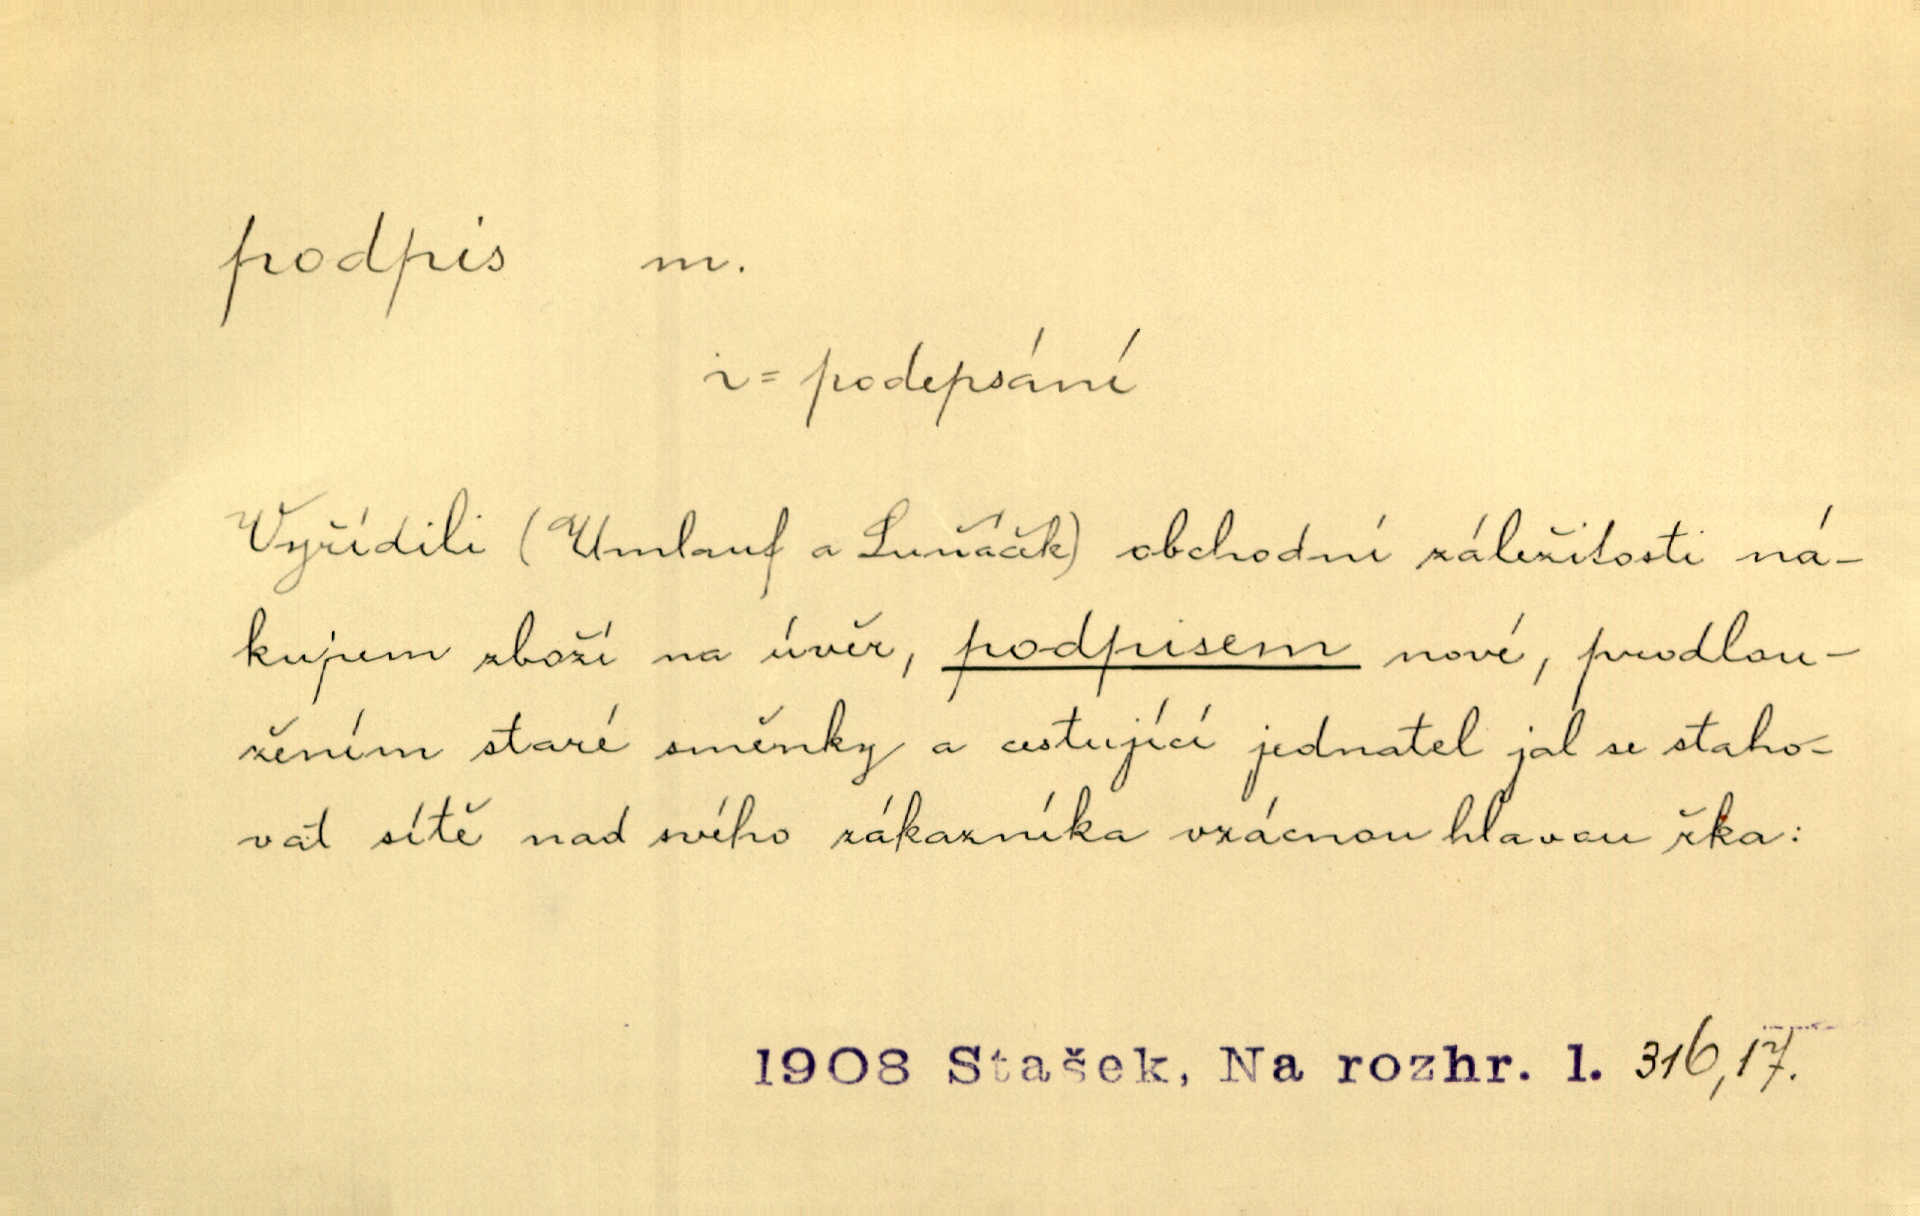 podpis m.
i = podepsání
Vyřídili (Umlauf a Luňáček) obchodní záležitosti ná-
kupem zboží na úvěr, podpisem nové, prodlou-
žením staré směnky a cestující jednatel jal se staho-
vat sítě nad svého zákazníka vzácnou hlavou řka:
1908 Stašek, Na rozhr. 1. 316,17.